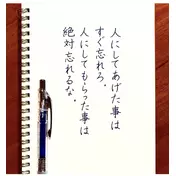 人にしてあげた事は
すぐ忘れろ。
人にしてもらった事は
絶対忘れるな。